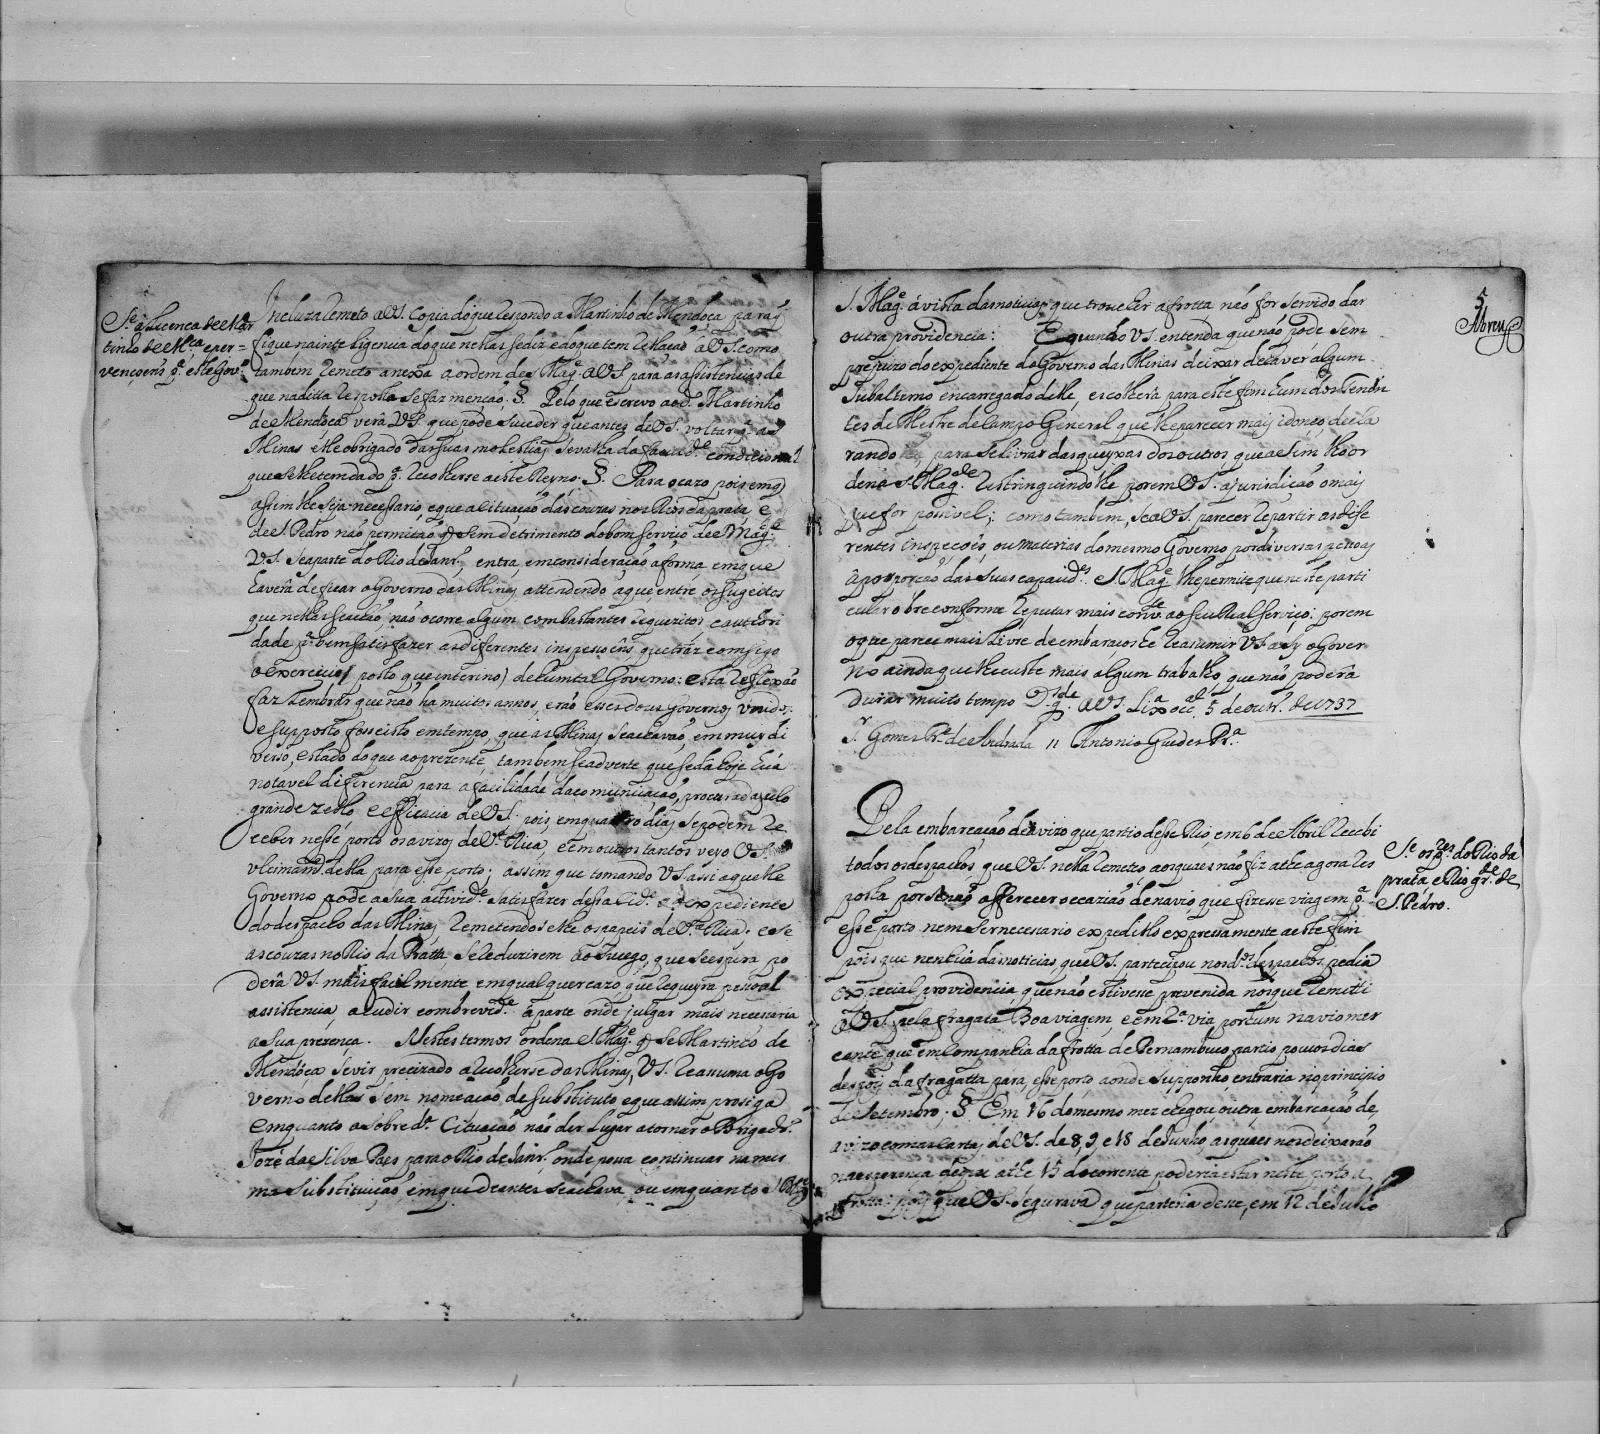 Se. a Licença de Mar
tinho de M.ça e per=
venções p.ª este Gov.º
Incluza remeto a VS. Copia do que respondo a Martinho de Mendoça para q
fique na inteligencia do que nellas se diz e do que tem relação a VS. como
tambem remeto anexa a ordem de S. Mag.e a VS. para as assistencias de
que na ditta resposta se faz menção. §. Pelo que escrevo ao d.º Martinho
de Mendoça verá VS. que póde suceder que antes de VS. voltar p.ª as
Minas elle obrigado das suas molestias se valha da faculd.e condicional
que se lhe tem dado p.ª recolherse a este Reyno. §. Para o cazo pois em q
assim lhe seja necessario, e que a situação das couzas nos Rios da prata, e
de S. Pedro não permitão q sem detrimento do bom serviço de S. Mag.e
VS. se aparte do Rio de Janr.º, entra em consideração a forma em que
haverá de ficar o Governo das Minas attendendo a que entre os sugeitos
que nellas se achão, não ocorre algum com bastantes requezitos e authori
dade p.ª bem satisfazer as diferentes inspecções que tráz comsigo
o exercicio (posto que interino) de hum tal Governo: esta reflexão
faz lembrar que não ha muitos annos, erão esses dous Governos unidos.
e supposto fosse isto em tempo, que as Minas se achavão em muy di
verso estado do que ao prezente, tambem se adverte que se dá hoje húa
notavel diferencia para a facilidade da comunicação, procurada pelo
grande zello, e efficacia de VS. pois em quatro dias se podem re
ceber nesse porto os avizos de V.ª Rica, e em outros tantos veyo VS.
ultimam.te della para esse porto; assim que tomando VS. a ssi aquelle
Governo pode a sua activid.e satisfazer dessa Cid.e o expediente
do despacho das Minas remetendoselhe os papeis de V.ª Rica. e se
as couzas no Rio da Pratta, se reduzirem ao sucego, que se espera po
derá VS. mais facilmente em qual quer cazo, que requeyra pessoal
assistencia, acudir com brevid.e á parte onde julgar mais necessaria
a sua prezença. Nestes termos ordena S. Mag.e q se Martinho de
Mendoça se vir precizado a recolherse das Minas, VS. reassuma o Go
verno dellas sem nomeação de substituto e que assim prosiga
emquanto a sobred.ª Cituação não der lugar a tornar o Brigadr.º
Jozé da Silva Paes para o Rio de Janr.º, onde possa continuar na mes
ma substituição, em que de antes se achava, ou emquanto S. Mag.e
5
Abreu
S. Mag.e á vista das noticias que trouxer a frotta, não for servido dar
outra providencia: E quando VS. entenda que não póde sem
prejuizo do expediente do Governo das Minas deixar de haver algum
subalterno encarregado delle, escolherá para este fim hum dos Tenen
tes de Mestre de Campo General que lhe parecer mais idoneo, decla
rando lhe, para se livrar das queyxas dos outros que assim lho or
dena S. Mag.de restringuindolhe porem VS. a jurisdição o mais
que for possivel; como tambem, se a VS. parecer repartir as dife
rentes inspecções, ou materias do mesmo Governo por diversas pessoas
á proporção das suas capacid.es S. Mag.e lhe permite que neste parti
cular obre conforme reputar mais conv.te ao seu Real serviço: porem
o que parece mais livre de embaraços he reasumir VS. a sy o Gover
no ainda que lhe custe mais algum trabalho, que não poderá
durar muito tempo. D.s g.de a VS. Lix.ª occ.al 5 de outr.º de 1737
S.r Gomes Fr.e de Andrada // Antonio Guedes Pr.ª
Pela embarcação de avizo que partio desse Rio, em 6 de Abril recebi
todos os despachos, que VS. nella remeteo aos quaes não fiz athe agora res
posta por se não offerecer occazião de navio, que fizesse viagem p.ª
esse porto, nem ser necessario expedillo expressamente a este fim
pois que nenhúa das noticias, que VS. participou nos d.os despachos, pedia
especial providencia, que não estivesse prevenida nos que remetti
a VS. pela fragata Boa viagem, e em 2.ª via por hum navio mer
cante que em Companhia da frotta de Pernambuco partio poucos dias
despois da fragatta para esse porto, aonde supponho entraria no principio
de Setembro. § Em 16 do mesmo mez chegou outra embarcação de
avizo com as Cartas de VS. de 8, 9 e 18 de Junho, as quaes nos deixarão
na esperença de que athe 15 do corrente poderia estar neste porto a
frotta: pois que VS. segurava que partiria desse, em 12 de Julho
Se. os p.res do Rio da
prata, e Rio gr.de de
S. Pedro.